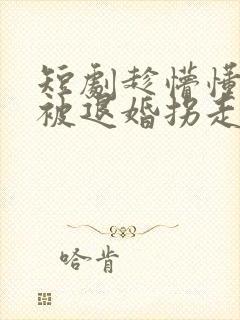 短劇趁懵懂
被退婚拐走
哈肯